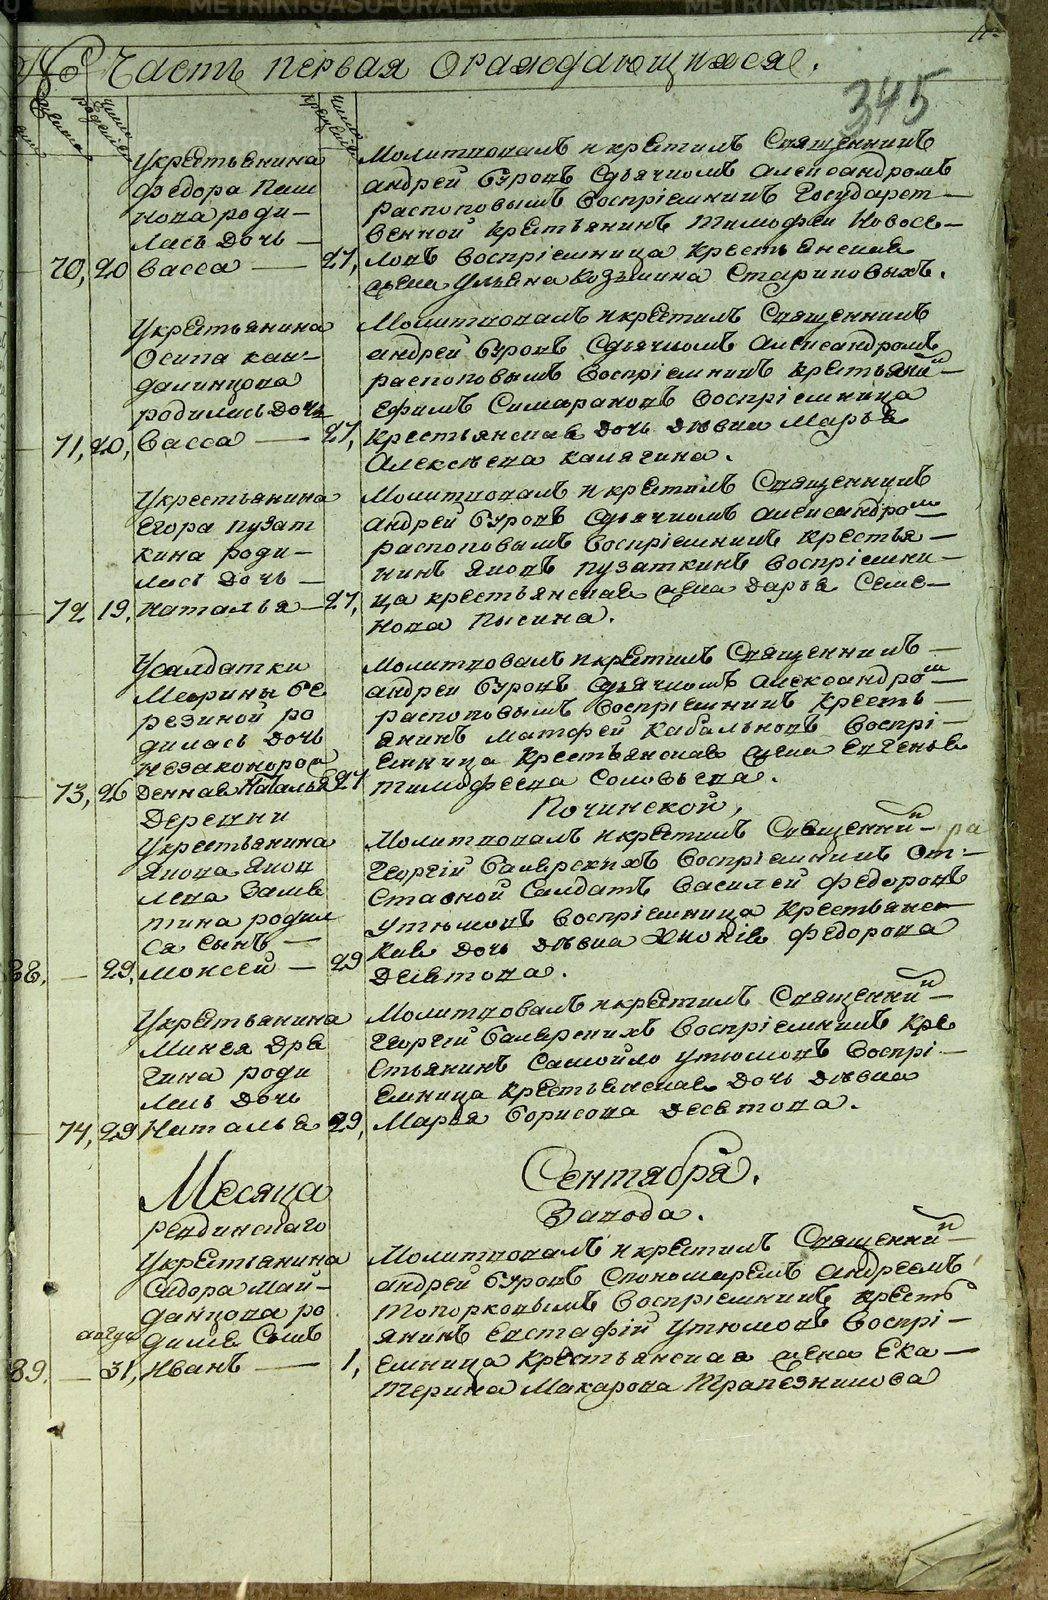 METRIKI.GASU-URAL.RU
№ Часть первая Ораждающихся.
345
Укрестьянина
Федора Паш
нова роди—
лась Дочь—
70, 20 Васса — 27,
Молитвовалъ и крестилъ Священникъ
андрей Буровъ Сдьячкомъ Александромъ
распоповымъ Воспріемникъ Государст—
венной крестьянинъ Тимофеи Новосе—
ловъ Воспріемница Крестьянская
жена Ульяна Козьмина Стариковыхъ.
Укрестьянина
Осипа кан—
далинцова
родилась Дочь
71, 20, Васса — 27,
Молитвовалъ и крестилъ Священникъ
андрей Буровъ Сдьячкомъ Александромъ
распоповымъ Воспріемникъ Крестьяни—
Ефимъ Симарановъ Воспріемница
Крестьянская Дочь Дѣвка Марья
Алексѣева Калягина.
Укрестьянина
Егора пузат
кина роди—
лась Дочь—
72 19, Наталья — 27,
Молитвовалъ и крестилъ Священникъ
андрей Буровъ Сдьячкомъ Александром
распоповымъ Воспріемникъ Крестья—
нинъ Яковъ пузаткинъ Воспріемни—
ца крестьянская жена Дарья Семе—
нова Пысина.
Усалдатки
Марины бе
резиной ро
дилась Дочь
незаконорож
73, 26 Денная Наталья 27
Молитвовалъ и крестилъ Священникъ—
андреи Буровъ Сдьячкомъ Александром
распоповымъ Воспріемникъ Кресть—
янинъ Матфей Кабальновъ Воспрі—
емница Крестьянская жена Евгенья
тимофеева Соловьева.
Деревни
Починской,
Укрестьянина
Якова Яков
лева Замя
тина родил
ся Сынъ—
88, — 29, Моисей — 29
Молитвовалъ и крестилъ Священни—
Георгій Боярскихъ Воспріемникъ От—
Ставной Салдатъ Василей Федоровъ
Утюмовъ Воспріемница Крестьянс
кая Дочь Дѣвка Хионія Федорова
Девятова.
Укрестьянина
Минея Дря
гина роди
лась Дочь
74, 29 Наталья 29,
Молитвовалъ и крестилъ Священни—
Георгій Боярскихъ Воспріемникъ Кре
стьянинъ Самойло Утюмовъ Воспрі—
емница Крестьянская Дочь Дѣвка
Марья Борисова Девятова.
Месяца Сентября.
Ревдинскаго Завода.
Укрестьянина
Сидора Май—
данцова ро
дился Сынъ
авгус
89. — 31, Иванъ — 1,
Молитвовалъ и крестилъ Священни—
андрей Буровъ Спономаремъ Андреемъ
Топорковымъ Воспріемникъ Кресть
янинъ Евстафій Утюмовъ Воспрі—
емница Крестьянская жена Ека—
терина Макарова Трапезникова